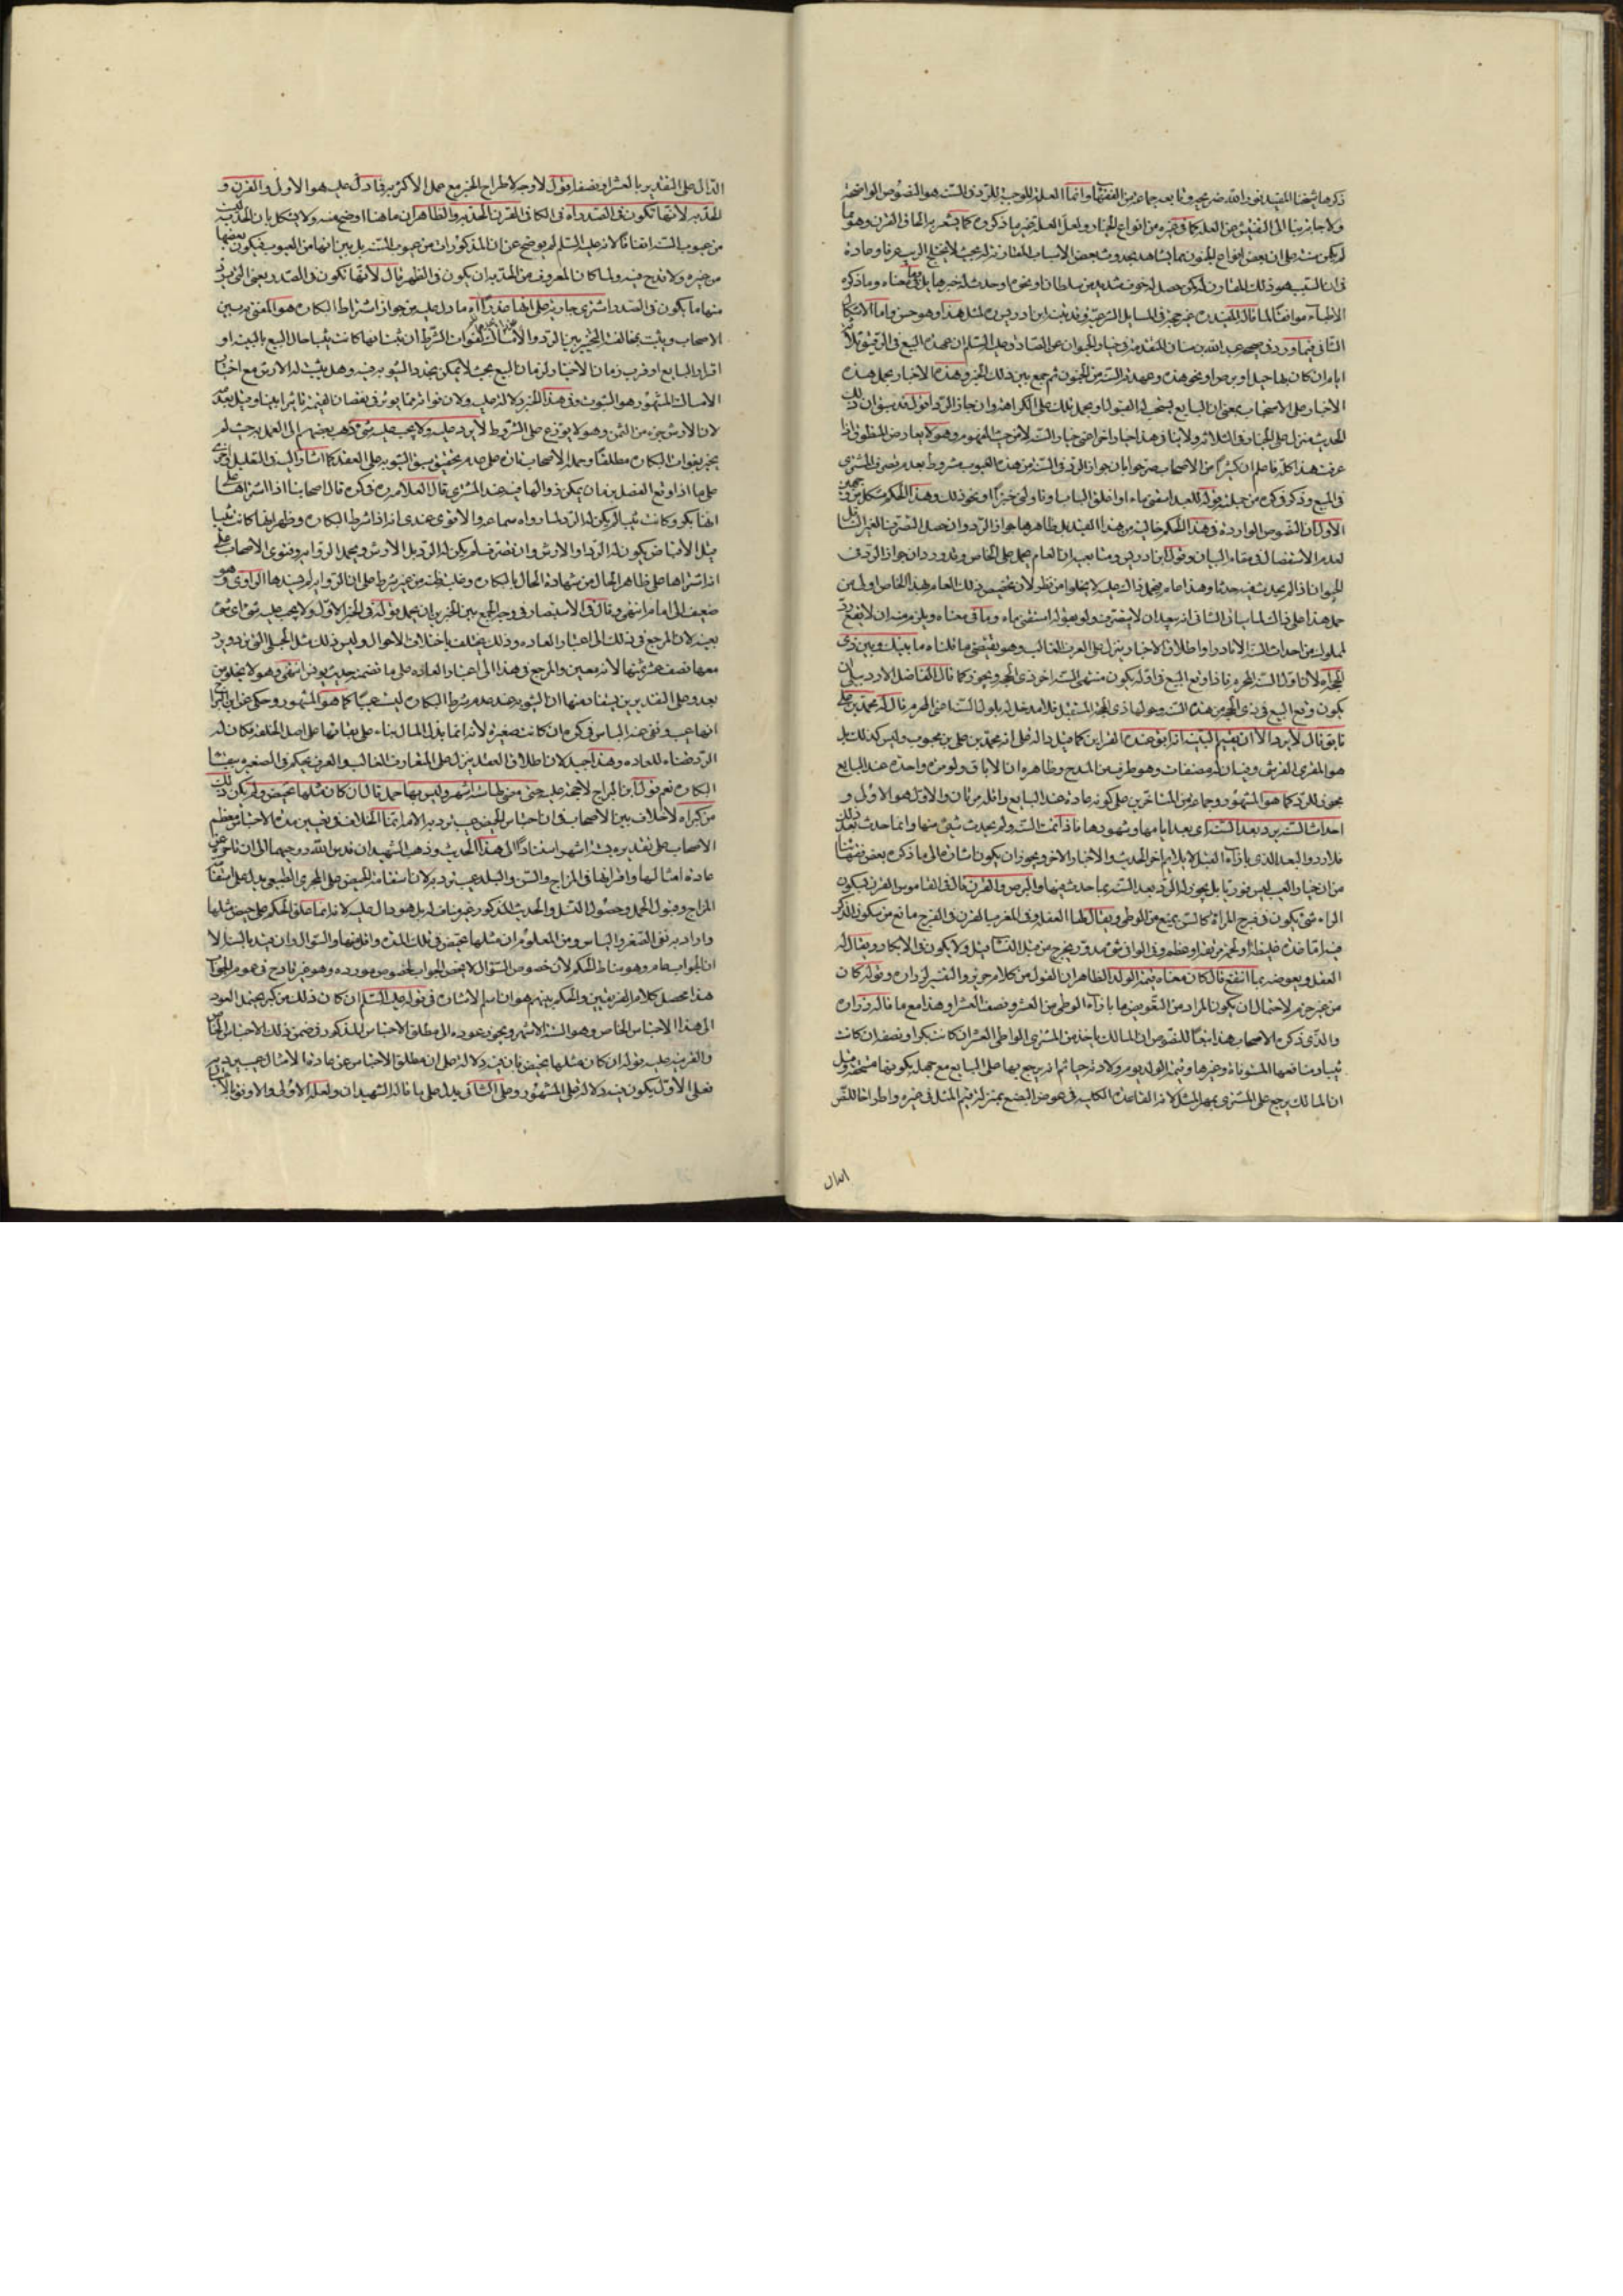 ذكرها شيخنا المفيد نور الله ضريحه وتابعه جماعة من الفقهاء وانما العلة الموجبة للرد في السنة هو النصوص الواضحة
ولا حاجة بنا الى التفتيش عن العلة كما في غيره من انواع الخيار ولعل العلة غير ما ذكروه كما يشعر به الحاق القرن وهو مما
لم يكن
في ان السبب هو ذلك
الاطباء موافقا لما قاله المفيد ره غير حجة في المسايل الشرعية وهو حسن واما الاشكال
الثاني فيما ورد في صحيحة عبد الله بن سنان المتقدمة في خيار الحيوان عن الصادق عليه السلم ان عهدة البيع في الرقيق ثلثة
ايام ان كان بها حبل او برص او نحو هذه وعهدته السنة من الجنون ثم جمع بين ذلك الخبر وهذه الاخبار بحمل هذه
الاخبار على الاستحباب بمعنى ان البايع يستحب له القبول
الحديث منزل على الخيار في الثلاثة ولا ينافي هذا خيارا اخر اعني خيار السنة الا من حيث المفهوم وهو لا يعارض المنطوق اذا
عرفت هذا كله فاعلم ان كثيرا من الاصحاب صرحوا بان جواز الرد في السنة من هذه العيوب مشروط بعدم تصرف المشتري
في المبيع وذكروا من جملته قوله للعبد اسقني ماء او اغلق الباب او ناولني خبزا او نحو ذلك وهذا الحكم مشكل من جهتين
الاول ان النصوص الواردة في هذا الحكم خالية من هذا القيد بل ظاهرها جواز الرد وان حصل التصرف
لعدم الاستفصال في مقام البيان وقول ابن ادريس ومتابعيه ان العام يحمل على الخاص وقد ورد ان جواز الرد في
الحيوان اذا لم يحدث فيه حدثا وهذا عام فيحمل ذاك عليه لا يخلو من نظر لان تخصيص ذلك العام بهذا الخاص اولى من
حمل هذا على ذاك الثاني انه يبعد ان لا يتصرف ولو بقوله اسقني ماء وما في معناه ويلزم منه ان لا يقع رد
لمملوك من احداث السنة الا نادرا واطلاق الاخبار ينزل على العرف الغالب وهو يقتضي ما قلناه
الحجة لان اول السنة المحرم فاذا وقع البيع في اوله يكون منتهى السنة اخر ذي الحجة ويجوز كما قال الفاضل الاردبيلي ان
يكون وقع البيع في ذي الحجة من هذه السنة وحولها ذي الحجة المستقبل قوله محمد بن علي
هو المقري القرشي
يجوز للرد كما هو المشهور وجماعة من المتاخرين على كونه عادة عند البايع واقله مرتان والاول هو الاولى و
احداث السنة يرد بعد السنة اي بعد ايامها وشهورها فاذا تمت السنة ولم يحدث شيء منها وانما حدث بعد ذلك
فلا رد
من ان خيار العيب ليس فوريا بل يجوز له الرد بعد السنة بما حدث فيها والبرص والقرن قال في القاموس القرن يكون
الراء شيء يكون في فرج المراة كالسن يمنع من الوطي ويقال لها العفلة وفي المغرب القرن في الفرج مانع من سلوك الذكر
فيه اما غدة غليظة او لحمة مرتفعة او عظم
العفل ويعوضه بما انتفع قال كان معناه قيمة الولد الظاهر ان القول من كلام حريز والتفسير لزرارة وقوله كان
من غير جزم لاحتمال ان يكون المراد من التعويض ما بازاء الوطي من العشر ونصف العشر وهذا مع ما قاله زرارة
والذي ذكره الاصحاب هنا تبعا للنصوص ان المالك ياخذ من المشتري الواطي العشر ان كانت بكرا ونصفه ان كانت
ثيبا ومنافعها المستوفاة وغيرها وقيمة الولد يوم ولادته حيا ثم انه يرجع بها على البايع مع جهله بكونها مستحقة وقيل
ان المالك يرجع على المشتري بمهر المثل لانه القاعدة الكلية في عوض البضع بمنزلة قيمة المثل في غيره واطراحا للنص
الدال
الدال على التقدير بالعشر او نصفه اقول لا وجه لاطراح الخبر مع عمل الاكثر به قوله عليه هو الاول والقرن و
الحدبة لانها تكون في الصدر اه في الكافي القرن الحدبة والظاهر ان ما هنا اوضح منه ولا يشكل بان الحدبة ليست
من عيوب السنة اتفاقا لانه عليه السلم لم يوضح عن ان المذكورات من عيوب السنة بل بين انها من العيوب فيكون بعضها
من غيره ولا قدح فيه ولما كان المعروف من الحدبة ان يكون في الظهر قال لانها تكون في الصدر يعني التي ترد
منها ما يكون في الصدر اشترى جارية على انها عذراء اه ما دل عليه من جواز اشتراط البكارة هو المفتى به بين
الاصحاب ويثبت بمخالفته التخيير بين الرد والامساك لفوات الشرط ان ثبت انها كانت ثيبا حال البيع بالبينة او
اقرار البايع او قرب زمان الاختبار لزمان البيع بحيث لا يمكن تجدد الثيوبة فيه وهل يثبت له الارش مع اختيار
الامساك المشهور هو الثبوت وفي هذا الخبر دلالة عليه ولان فواته مما يؤثر في نقصان القيمة تاثيرا بينا وقيل بعدمه
لان الارش جزء من الثمن وهو لا يوزع على الشروط لا يرد عليه ولا يجب عليه شيء ذهب بعضهم الى العمل به حيث لم
يخير بفوات البكارة مطلقا وحمله الاصحاب
على ما اذا وقع الفصل بزمان يمكن ذوالها فيه عند المشتري قال العلامة ره في كره قال اصحابنا اذا اشتراها على
انها بكر وكانت ثيبا لم يكن له الرد لما رواه سماعة والاقوى عندي انه اذا شرط البكارة وظهر انها كانت ثيبا
قبل الاقباض يكون له الرد او الارش وان تصرف لم يكن له الرد بل الارش ويحمل الرواية وفتوى الاصحاب على
انه اشتراها على ظاهر الحال من شهادة الحال بالبكارة وغلب ظنه من غير شرط على ان الرواية لم يسندها الراوي وهو
ضعيف الى امام انتهى وقال في الاستبصار في وجه الجمع بين الخبرين ان يحمل قوله في الخبر الاول ولا يجب عليه شيء اي شيء
بعينه لان المرجع في ذلك الى اعتبار العادة وذلك يختلف باختلاف الاحوال وليس ذلك مثل الحبلى التي ترد ويرد
معها نصف عشر ثمنها لانه معين والمرجع في هذا الى اعتبار العادة على ما تضمنه حديث يونس انتهى وهو لا يخلو من
بعد وعلى التقديرين يستفاد منها ان الثيوبة عند عدم شرط البكارة ليست عيبا كما هو المشهور وحكى عن ابن البراج
انها عيب ونفى عنه الباس في كره ان كانت صغيرة لانه انما بذل المال بناء على بقائها على اصل الخلقة فكان له
الرد قضاء للعادة وهذا جيد لان اطلاق العقد ينزل على المتعارف الغالب والعرف يحكم في الصغيرة
البكارة نعم قول ابن البراج لا حجة عليه حتى مضى لها ستة اشهر وليس بها حمل قال ان كان مثلها تحيض ولم يكن ذلك
من كبر اه لا خلاف بين الاصحاب في ان احتباس الحيض عيب ترد به الامة انما الخلاف في تعيين مدة الاحتباس فمعظم
الاصحاب على تقديره بستة اشهر استنادا الى هذا الحديث وذهب الشهيدان قدس الله روحيهما الى ان تاخره عن
عادة امثالها واقرانها في المزاج والسن والبلد عيب ترد به لان استقامة الحيض على المجرى الطبيعي يدل على استقامة
المزاج وقبول الحمل وحصول النسل والحديث المذكور غير مناف له بل هو دال عليه لانه انما علق الحكم على حيض مثلها
واراد به نفي الصغر والياس ومن المعلوم ان مثلها تحيض في تلك المدة واقل منها والسؤال وان قيد بالستة الا
ان الجواب عام وهو مناط الحكم لان خصوص السؤال لا يخص الجواب بخصوص مورده وهو غير قادح في عموم الجواب
هذا محصل كلام الفريقين والحكم بينهم هو ان اسم الاشارة في قوله عليه السلم ان كان ذلك من كبر يحتمل العود
الى هذا الاحتباس الخاص وهو الستة الاشهر ويجوز عوده الى مطلق الاحتباس المذكور في ضمن ذلك الاحتباس الخاص
والقرينة عليه قوله ان كان مثلها تحيض فان فيه دلالة على ان مطلق الاحتباس عن عادة الامثال عيب
فعلى الاول يكون فيه دلالة على المشهور وعلى الثاني يدل على ما قاله الشهيدان ولعله الاولى والاوفق